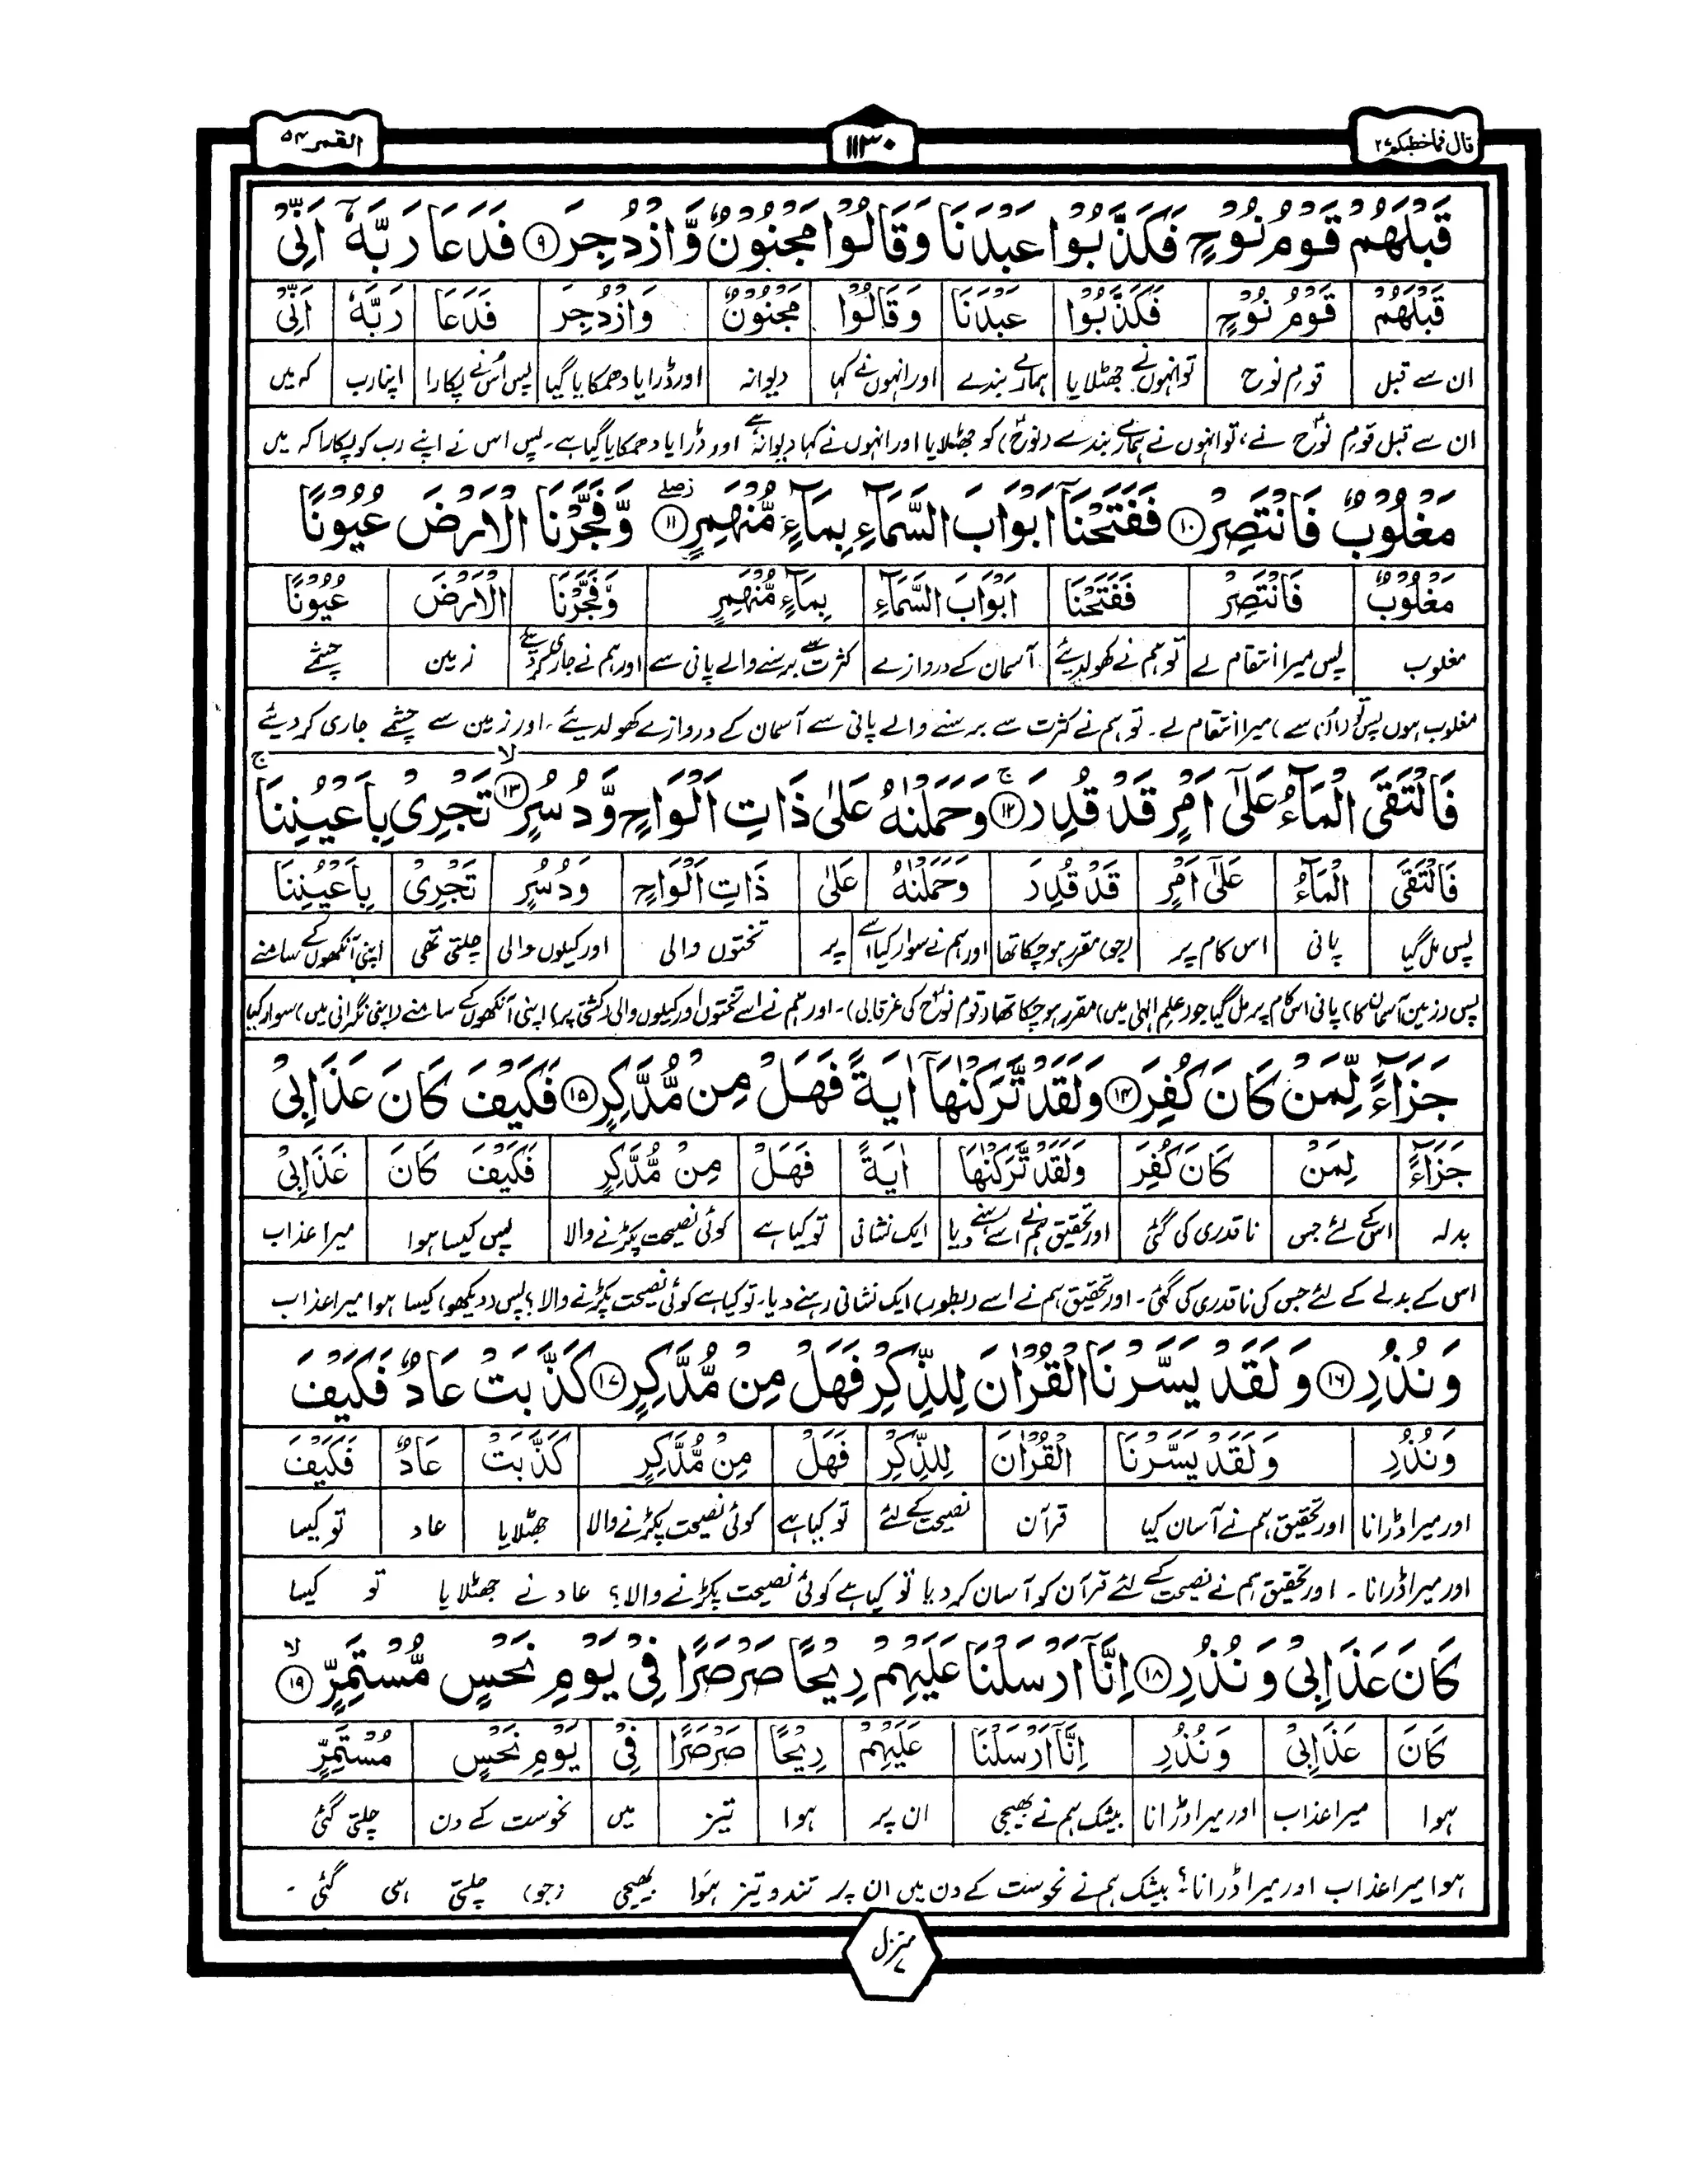 قال فما خطبكم ٢٧
١١٣٠
القمر ٥٤
قَبْلَهُمْ قَوْمُ نُوْحٍ فَكَذَّبُوْا عَبْدَنَا وَقَالُوْا مَجْنُوْنٌ وَّازْدُجِرَ ۹ فَدَعَا رَبَّهٗۤ اَنِّیْ
قَبْلَهُمْ قَوْمُ نُوْحٍ فَكَذَّبُوْا عَبْدَنَا وَقَالُوْا مَجْنُوْنٌ وَازْدُجِرَ فَدَعَا رَبَّهٗ اَنِّیْ
ان سے قبل قومِ نوح تو انہوں نے جھٹلایا ہمارے بندے اور انہوں نے کہا دیوانہ اور ڈرایا دھمکایا گیا پس اُس نے پکارا اپنا رب کہ میں
ان سے قبل قومِ نوحؑ نے، تو انہوں نے ہمارے بندے (نوحؑ) کو جھٹلایا اور انہوں نے کہا دیوانہ ہے اور ڈرایا دھمکایا گیا ہے۔ پس اس نے اپنے رب کو پکارا کہ میں
مَغْلُوْبٌ فَانْتَصِرْ ۱۰ فَفَتَحْنَاۤ اَبْوَابَ السَّمَآءِ بِمَآءٍ مُّنْهَمِرٍ ۱۱ وَّفَجَّرْنَا الْاَرْضَ عُیُوْنًا
مَغْلُوْبٌ فَانْتَصِرْ فَفَتَحْنَا اَبْوَابَ السَّمَآءِ بِمَآءٍ مُّنْهَمِرٍ وَّفَجَّرْنَا الْاَرْضَ عُیُوْنًا
مغلوب پس میرا انتقام لے تو ہم نے کھولدیئے آسمان کے دروازے کثرت سے برسنے والے پانی سے اور ہم نے جاری کر دیئے زمین چشمے
مغلوب ہوں پس تو (اُن سے) میرا انتقام لے۔ تو ہم نے کثرت سے برسنے والے پانی سے آسمان کے دروازے کھولدیئے، اور زمین سے چشمے جاری کر دیئے
فَالْتَقَی الْمَآءُ عَلٰۤی اَمْرٍ قَدْ قُدِرَ ۱۲ وَحَمَلْنٰهُ عَلٰی ذَاتِ اَلْوَاحٍ وَّدُسُرٍ ۱۳ تَجْرِیْ بِاَعْیُنِنَا
فَالْتَقَی الْمَآءُ عَلٰۤی اَمْرٍ قَدْ قُدِرَ وَحَمَلْنٰهُ عَلٰی ذَاتِ اَلْوَاحٍ وَدُسُرٍ تَجْرِیْ بِاَعْیُنِنَا
پس مل گیا پانی اس کام پر (جو) مقرر ہو چکا تھا اور ہم نے سوار کیا اسے پر تختوں والی اور کیلوں والی چلتی تھی اپنی آنکھوں کے سامنے
پس (زمین آسمان کا) پانی اس کام پر مل گیا جو (علمِ الٰہی میں) مقرر ہو چکا تھا (قوم نوحؑ کی غرقابی)۔ اور ہم نے اسے تختوں اور کیلوں والی (کشتی پر) اپنی آنکھوں کے سامنے (اپنی نگرانی میں) سوار کیا
جَزَآءً لِّمَنْ كَانَ كُفِرَ ۱۴ وَلَقَدْ تَّرَكْنٰهَاۤ اٰیَةً فَهَلْ مِنْ مُّدَّكِرٍ ۱۵ فَكَیْفَ كَانَ عَذَابِیْ
جَزَآءً لِمَنْ كَانَ كُفِرَ وَلَقَدْ تَّرَكْنٰهَا اٰیَةً فَهَلْ مِنْ مُّدَّكِرٍ فَكَیْفَ كَانَ عَذَابِیْ
بدلہ اس کے لئے جس ناقدری کی گئی اور تحقیق ہم نے اسے رہنے دیا ایک نشانی تو کیا ہے کوئی نصیحت پکڑنے والا پس کیسا ہوا میرا عذاب
اس کے بدلے کے لئے جس کی ناقدری کی گئی۔ اور تحقیق ہم نے اسے (بطور) ایک نشانی رہنے دیا۔ تو کیا ہے کوئی نصیحت پکڑنے والا؟ پس (دیکھو) کیسا ہوا میرا عذاب
وَنُذُرِ ۱۶ وَلَقَدْ یَسَّرْنَا الْقُرْاٰنَ لِلذِّكْرِ فَهَلْ مِنْ مُّدَّكِرٍ ۱۷ كَذَّبَتْ عَادٌ فَكَیْفَ
وَنُذُرِ وَلَقَدْ یَسَّرْنَا الْقُرْاٰنَ لِلذِّكْرِ فَهَلْ مِنْ مُّدَّكِرٍ كَذَّبَتْ عَادٌ فَكَیْفَ
اور میرا ڈرانا اور تحقیق ہم نے آسان کیا قرآن نصیحت کے لئے تو کیا ہے کوئی نصیحت پکڑنے والا جھٹلایا عاد تو کیسا
اور میرا ڈرانا۔ اور تحقیق ہم نے نصیحت کے لئے قرآن کو آسان کر دیا تو کیا ہے کوئی نصیحت پکڑنے والا؟ عاد نے جھٹلایا تو کیسا
كَانَ عَذَابِیْ وَنُذُرِ ۱۸ اِنَّاۤ اَرْسَلْنَا عَلَیْهِمْ رِیْحًا صَرْصَرًا فِیْ یَوْمِ نَحْسٍ مُّسْتَمِرٍّ ۱۹
كَانَ عَذَابِیْ وَنُذُرِ اِنَّاۤ اَرْسَلْنَا عَلَیْهِمْ رِیْحًا صَرْصَرًا فِیْ یَوْمِ نَحْسٍ مُسْتَمِرٍّ
ہوا میرا عذاب اور میرا ڈرانا بیشک ہم نے بھیجی ان پر ہوا تیز میں نحوست کے دن چلتی گئی
ہوا میرا عذاب اور میرا ڈرانا؟ بیشک ہم نے نحوست کے دن میں ان پر تند و تیز ہوا بھیجی (جو) چلتی ہی گئی۔
منزل ۷